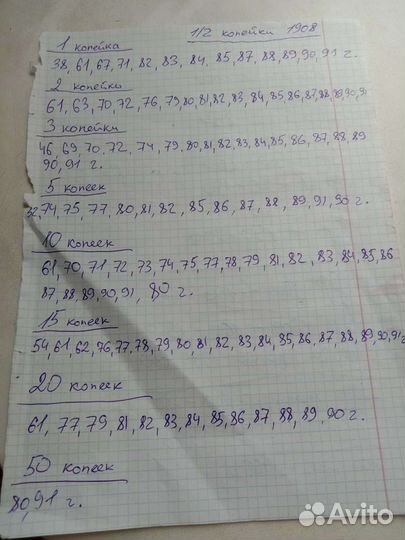 1 копейка
1/2 копейки 1908
38, 61, 67, 71, 82, 83, 84, 85, 87, 88, 89, 90, 91 г.
2 копейки
61, 63, 70, 72, 76, 79, 80, 81, 82, 83, 84, 85, 86, 87, 88, 89, 90, 91
3 копейки
46, 69, 70, 72, 74, 79, 80, 81, 82, 83, 84, 85, 86, 87, 88, 89
90, 91 г.
5 копеек
52, 74, 75, 77, 80, 81, 82, 85, 86, 87, 88, 89, 91, 90 г.
10 копеек
61, 70, 71, 72, 73, 74, 75, 77, 78, 79, 81, 82, 83, 84, 85, 86
87, 88, 89, 90, 91, 80 г.
15 копеек
54, 61, 62, 76, 77, 78, 79, 80, 81, 82, 83, 84, 85, 86, 87, 88, 89, 90, 91 г
20 копеек
61, 77, 79, 81, 82, 83, 84, 85, 86, 87, 88, 89, 90 г.
50 копеек
80, 91 г.
Avito